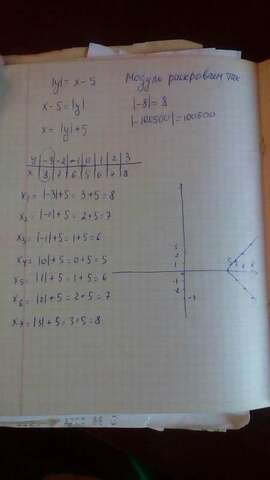 |y| = x - 5
Модуль раскрываем так
x - 5 = |y|
|-8| = 8
x = |y| + 5
|-100500| = 100500
y | -3 | -2 | -1 | 0 | 1 | 2 | 3
x | 8 | 7 | 6 | 5 | 6 | 7 | 8
x₁ = |-3| + 5 = 3 + 5 = 8
x₂ = |-2| + 5 = 2 + 5 = 7
x₃ = |-1| + 5 = 1 + 5 = 6
x₄ = |0| + 5 = 0 + 5 = 5
x₅ = |1| + 5 = 1 + 5 = 6
x₆ = |2| + 5 = 2 + 5 = 7
x₇ = |3| + 5 = 3 + 5 = 8
3
2
1
-1
-2
-3